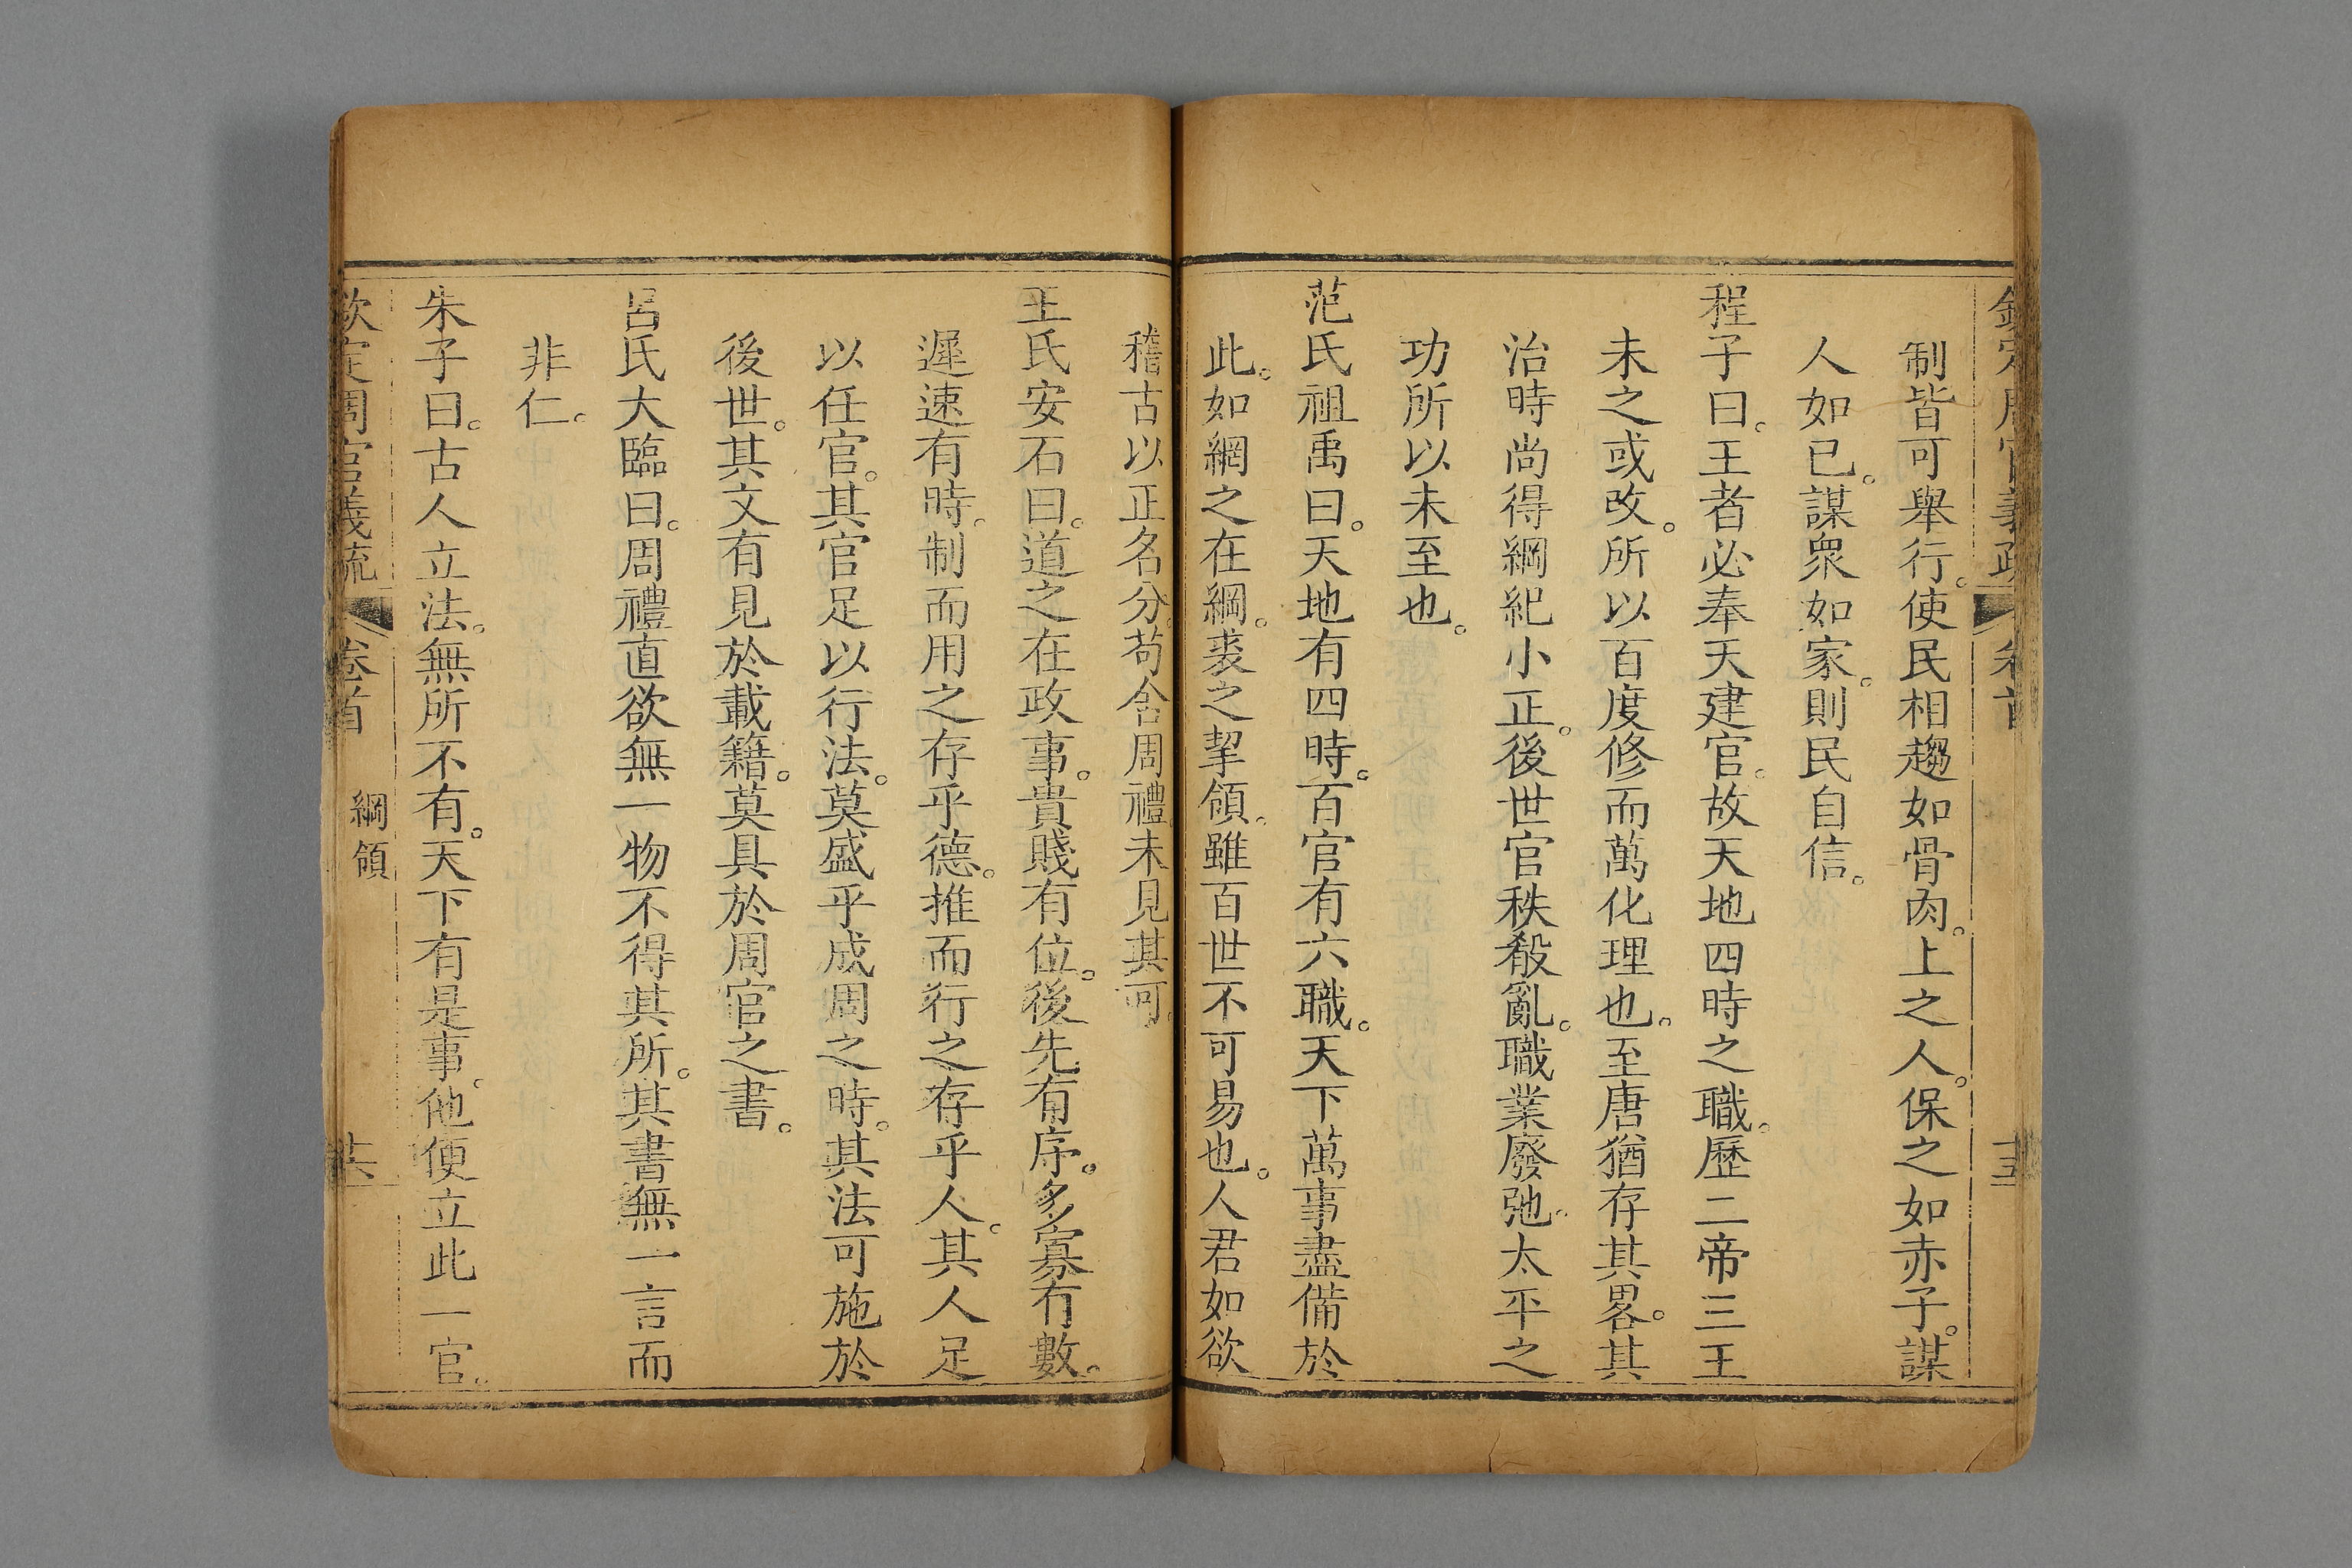 欽定周官義疏 卷首
制皆可舉行。使民相趨如骨肉。上之人。保之如赤子。謀
人如己。謀衆如家。則民自信。
程子曰。王者必奉天建官。故天地四時之職。歷二帝三王
未之或改。所以百度修而萬化理也。至唐猶存其畧。其
治時尚得綱紀小正。後世官秩殽亂。職業廢弛。太平之
功所以未至也。
范氏祖禹曰。天地有四時。百官有六職。天下萬事盡備於
此。如網之在綱。裘之挈領。雖百世不可易也。人君如欲
稽古以正名分。苟舍周禮。未見其可。
王氏安石曰。道之在政事。貴賤有位。後先有序。多寡有數。
遲速有時。制而用之存乎德。推而行之存乎人。其人足
以任官。其官足以行法。莫盛乎成周之時。其法可施於
後世。其文有見於載籍。莫具於周官之書。
呂氏大臨曰。周禮直欲無一物不得其所。其書無一言而
非仁。
朱子曰。古人立法。無所不有。天下有是事。他便立此一官。
欽定周官義疏 卷首 綱領